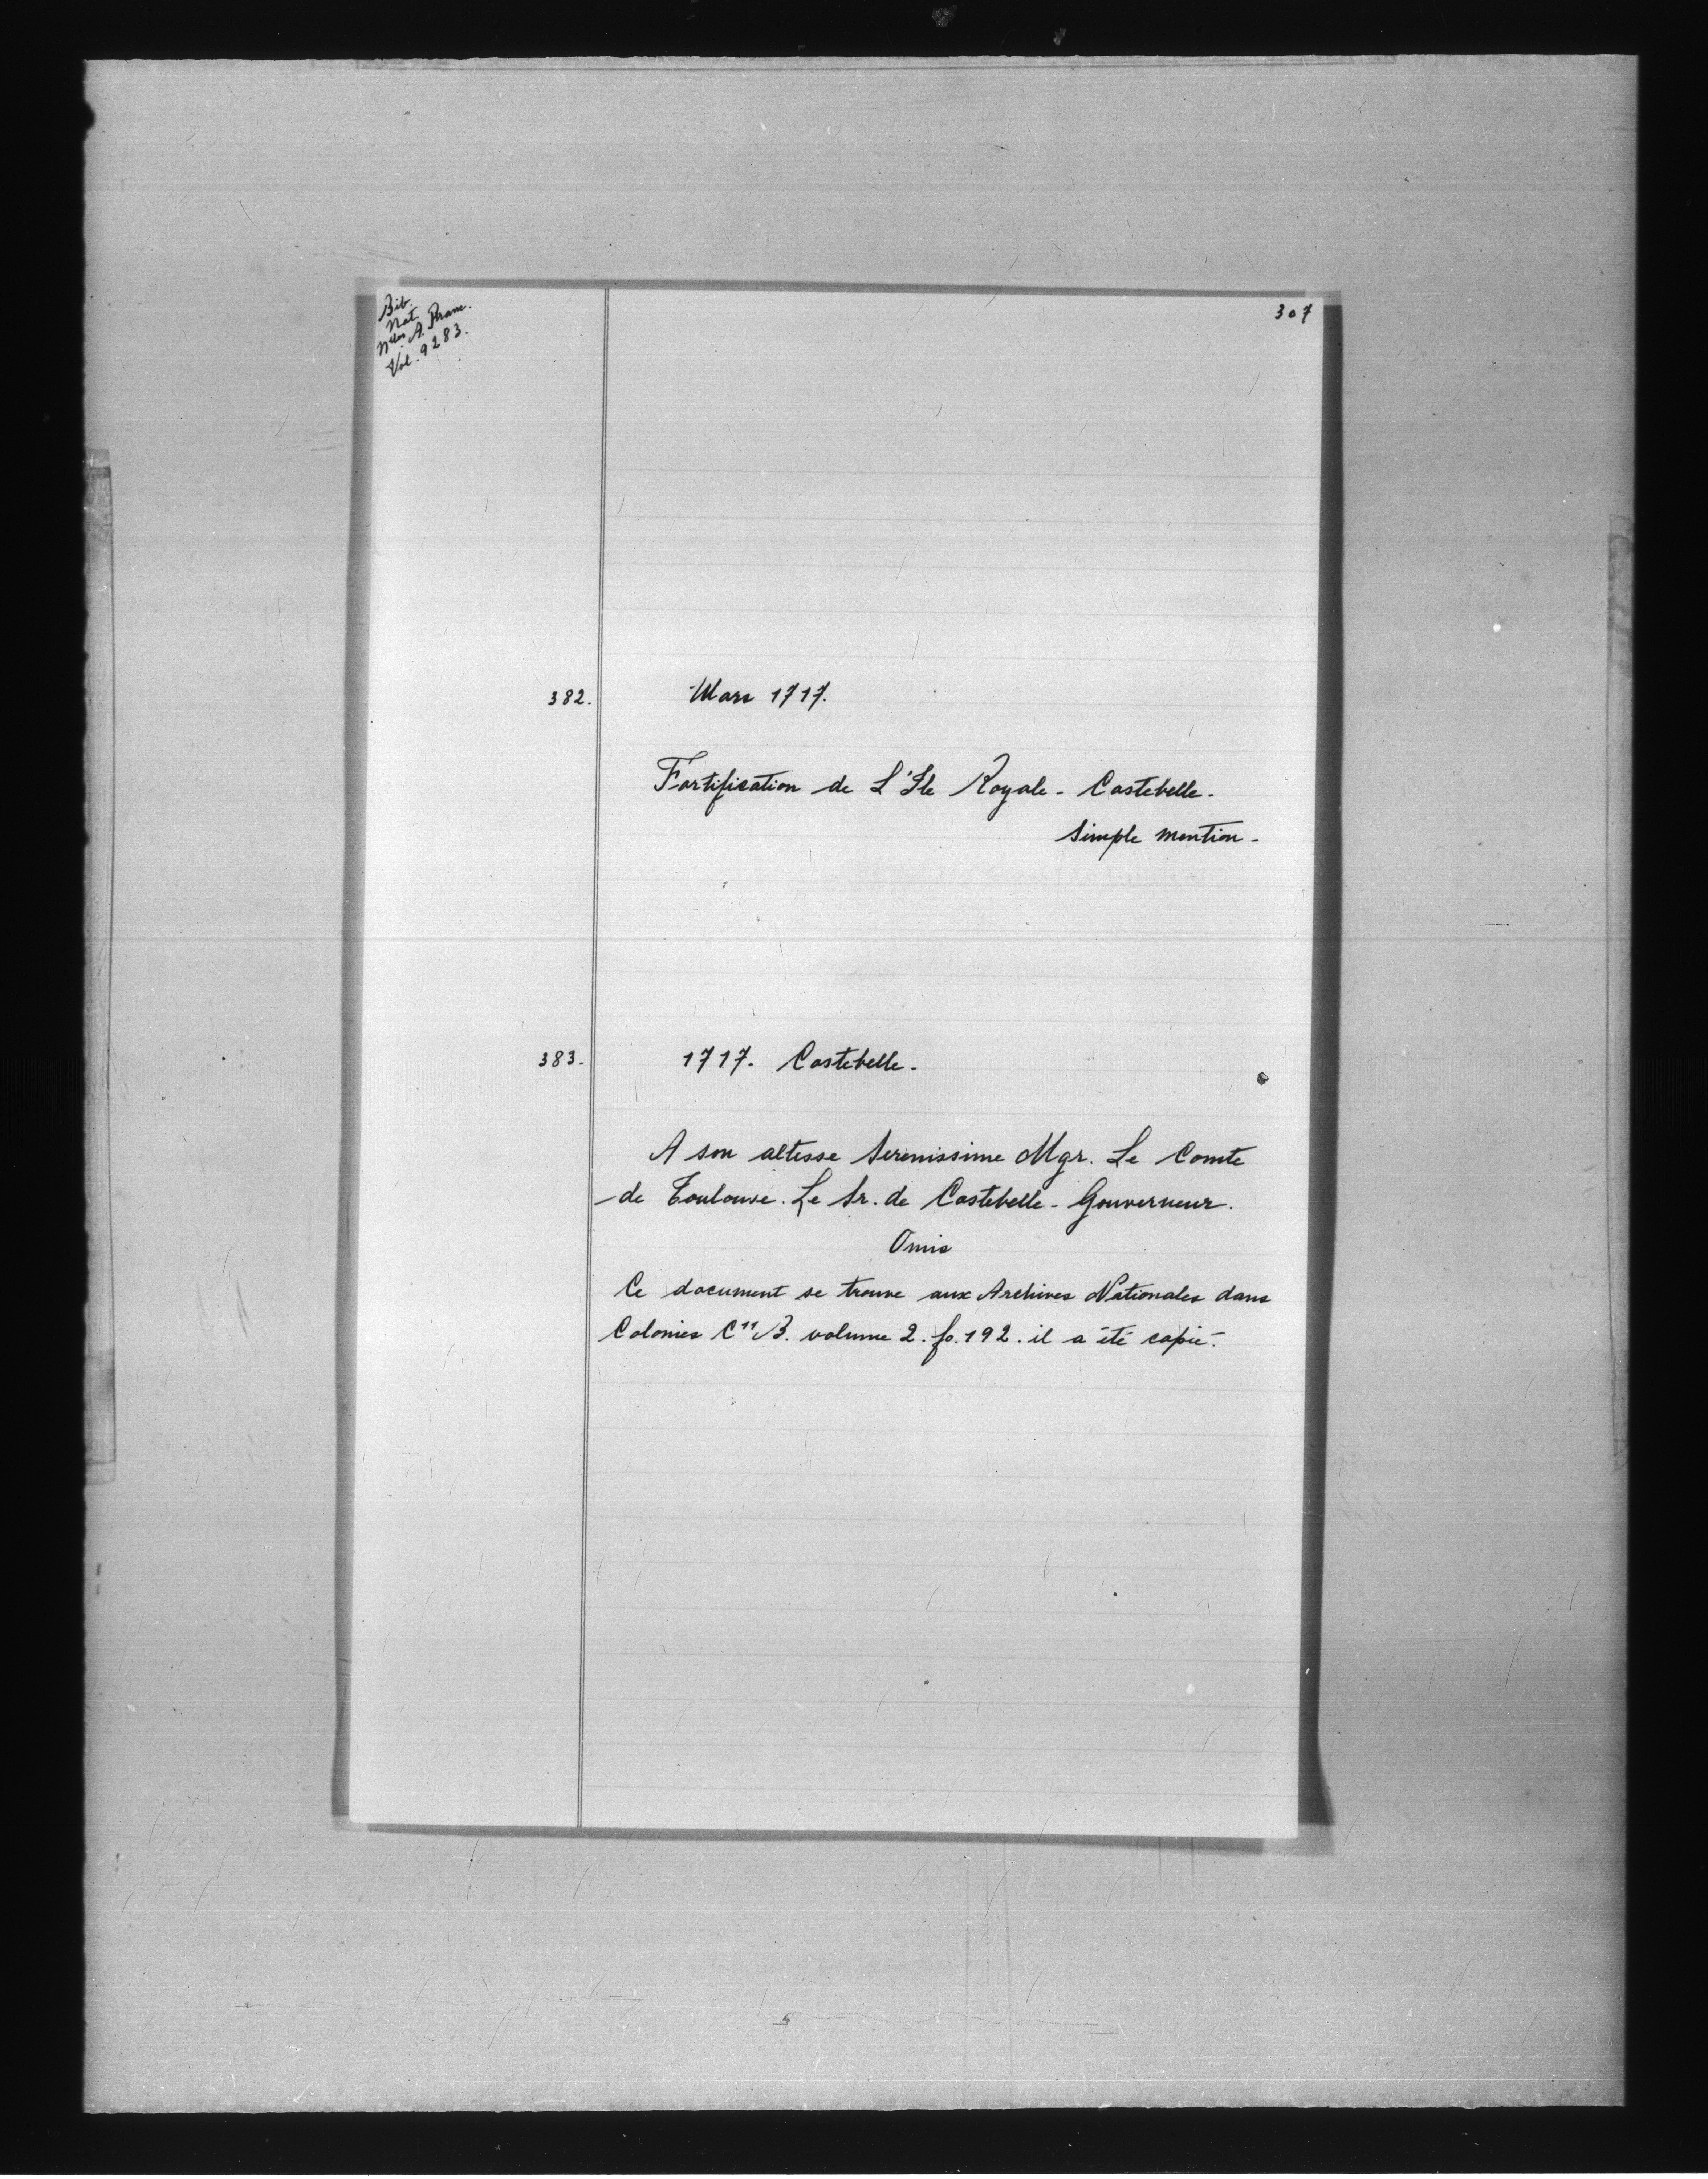 Bib.
Nat.
Nlles A. Franc.
Vol. 9283.
307
382.
Mars 1717.
Fortification de L'Ile Royale - Costebelle -
Simple mention -
383.
1717. Costebelle -
A son altesse Serenissime Mgr. Le Comte
de Toulouse. Le Sr. de Costebelle - Gouverneur.
Omis
Ce document se trouve aux Archives Nationales dans
Colonies C11 B. volume 2. fo. 192. il a été copié.